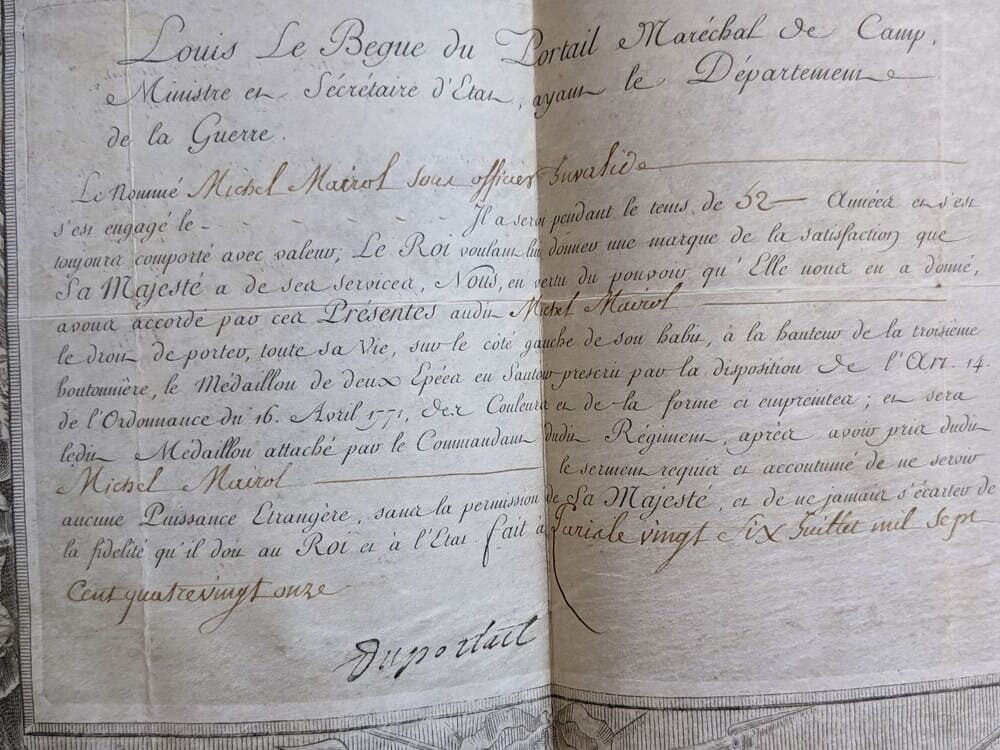 Louis Le Begue du Portail Maréchal de Camp,
Ministre et Sécrétaire d'Etat, ayant le Département
de la Guerre.
Le nommé Michel Mairol sous officier Invalide
s'est engagé le - Il a servi pendant le tems de 52 Années et s'est
toujours comporté avec valeur; Le Roi voulant lui donner une marque de la satisfaction que
Sa Majesté a de ses services, Nous, en vertu du pouvoir qu'Elle nous en a donné,
avons accordé par ces Présentes audit Michel Mairol
le droit de porter, toute sa vie, sur le côté gauche de son habit, à la hauteur de la troisième
boutonnière, le Médaillon de deux Epées en Sautoir prescrit par la disposition de l'Art. 14.
de l'Ordonnance du 16. Avril 1771, des Couleurs et de la forme ci empreintes; et sera
ledit Médaillon attaché par le Commandant dudit Régiment, après avoir pris dudit
Michel Mairol le serment requis et accoutumé de ne servir
aucune Puissance Etrangère, sans la permission de Sa Majesté, et de ne jamais s'écarter de
la fidélité qu'il doit au Roi et à l'Etat. fait a Paris le vingt Six Juillet mil Sept
Cent quatrevingt onze
Duportail